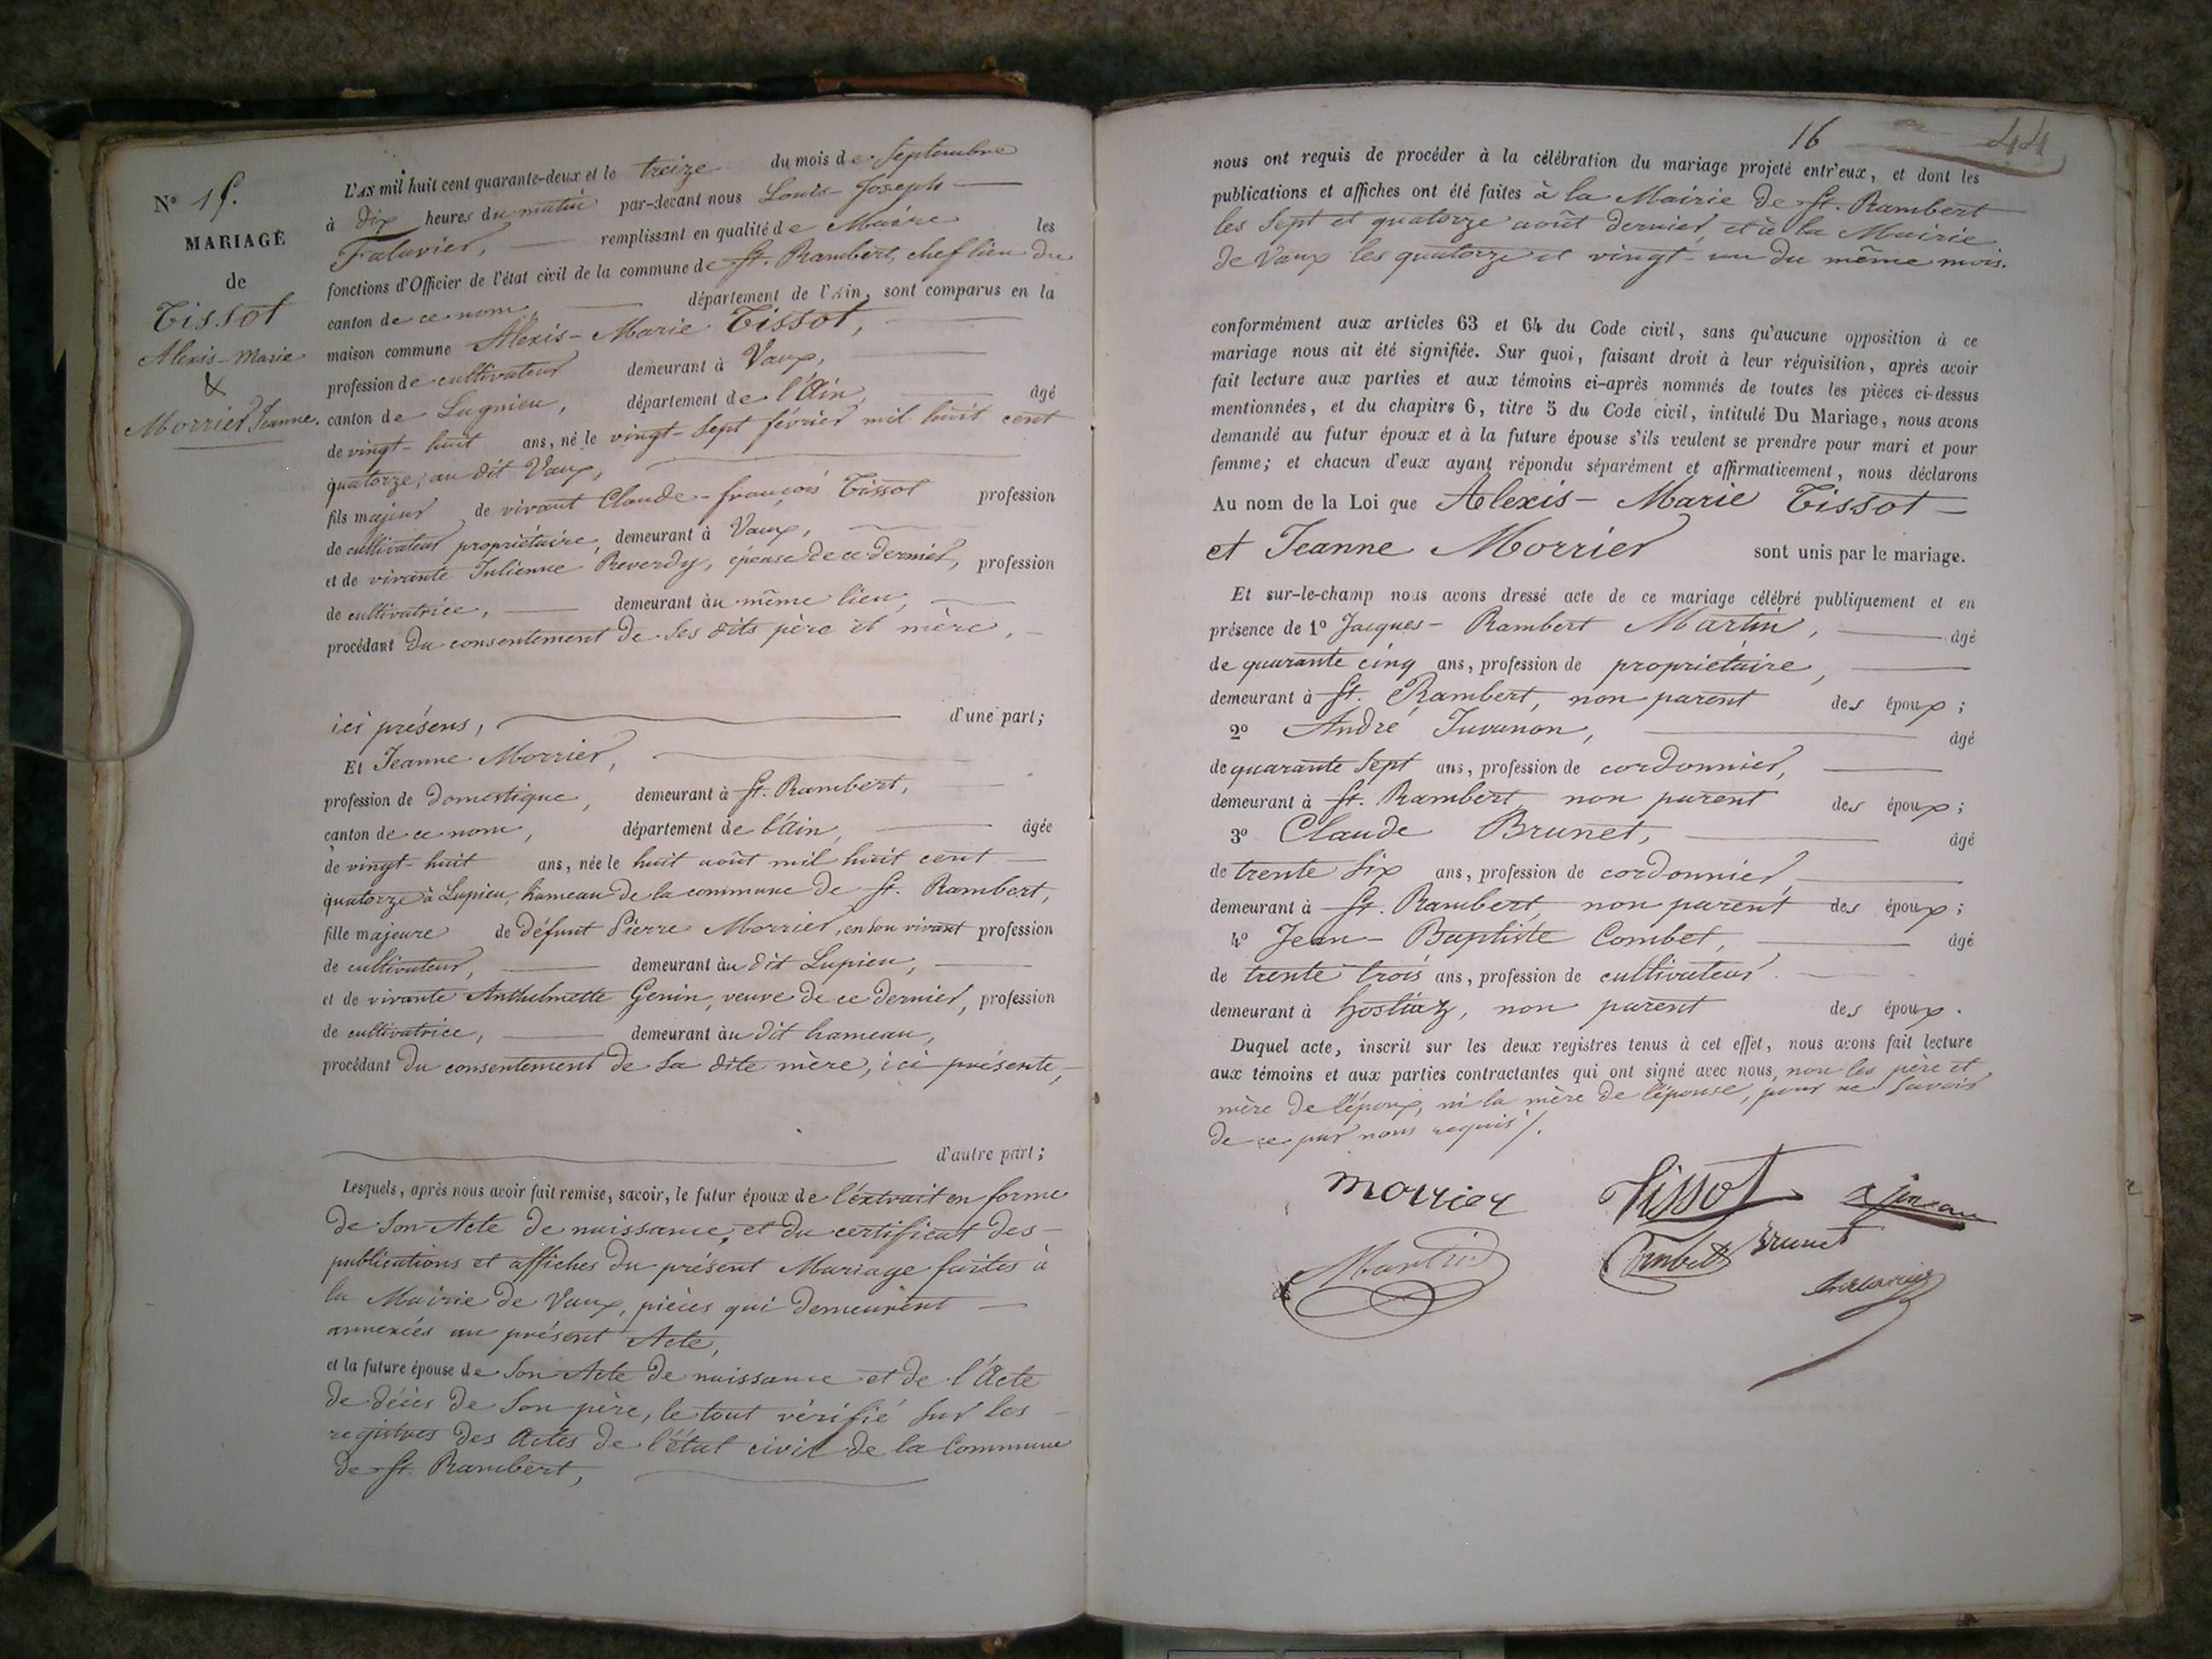 N° 15.
MARIAGE
de
Tissot
Alexis-Marie
&
Morrier Jeanne.
L'AN mil huit cent quarante-deux et le treize du mois de Septembre
à dix heures du matin par-devant nous Louis-Joseph
Falavier, remplissant en qualité de Maire les
fonctions d'Officier de l'état civil de la commune de St. Rambert, chef lieu du
canton de ce nom, département de l'Ain, sont comparus en la
maison commune Alexis-Marie Tissot,
profession de cultivateur demeurant à Vaux,
canton de Lagnieu, département de l'Ain, âgé
de vingt-huit ans, né le vingt-sept février mil huit cent
quatorze, au dit Vaux,
fils majeur de vivant Claude-françois Tissot profession
de cultivateur propriétaire, demeurant à Vaux,
et de vivante Julienne Reverdy, épouse de ce dernier, profession
de cultivatrice, demeurant au même lieu,
procédant du consentement de ses dits père et mère,
ici présens, d'une part;
Et Jeanne Morrier,
profession de domestique, demeurant à St. Rambert,
canton de ce nom, département de l'Ain, âgée
de vingt-huit ans, née le huit août mil huit cent
quatorze à Lupieu, hameau de la commune de St. Rambert,
fille majeure de défunt Pierre Morrier, en son vivant profession
de cultivateur, demeurant au dit Lupieu,
et de vivante Anthelmette Genin, veuve de ce dernier, profession
de cultivatrice, demeurant au dit hameau,
procédant du consentement de sa dite mère, ici présente,
d'autre part;
Lesquels, après nous avoir fait remise, savoir, le futur époux de l'extrait en forme
de son Acte de naissance, et du certificat des
publications et affiches du présent Mariage faites à
la Mairie de Vaux, pièces qui demeurent
annexées au présent Acte,
et la future épouse de son Acte de naissance et de l'Acte
de décès de son père, le tout vérifié sur les
registres des Actes de l'état civil de la Commune
de St. Rambert,
16 44
nous ont requis de procéder à la célébration du mariage projeté entr'eux, et dont les
publications et affiches ont été faites à la Mairie de St. Rambert
les sept et quatorze août dernier, et à la Mairie
de Vaux les quatorze et vingt-un du même mois.
conformément aux articles 63 et 64 du Code civil, sans qu'aucune opposition à ce
mariage nous ait été signifiée. Sur quoi, faisant droit à leur réquisition, après avoir
fait lecture aux parties et aux témoins ci-après nommés de toutes les pièces ci-dessus
mentionnées, et du chapitre 6, titre 5 du Code civil, intitulé Du Mariage, nous avons
demandé au futur époux et à la future épouse s'ils veulent se prendre pour mari et pour
femme; et chacun d'eux ayant répondu séparément et affirmativement, nous déclarons
Au nom de la Loi que Alexis-Marie Tissot
et Jeanne Morrier sont unis par le mariage.
Et sur-le-champ nous avons dressé acte de ce mariage célébré publiquement et en
présence de 1° Jacques-Rambert Martin, âgé
de quarante cinq ans, profession de propriétaire,
demeurant à St. Rambert, non parent des époux;
2° André Juvanon, âgé
de quarante sept ans, profession de cordonnier,
demeurant à St. Rambert non parent des époux;
3° Claude Brunet, âgé
de trente six ans, profession de cordonnier
demeurant à St. Rambert, non parent des époux;
4° Jean-Baptiste Combet, âgé
de trente trois ans, profession de cultivateur
demeurant à hostiaz, non parent des époux.
Duquel acte, inscrit sur les deux registres tenus à cet effet, nous avons fait lecture
aux témoins et aux parties contractantes qui ont signé avec nous, non les père et
mère de l'époux, ni la mère de l'épouse, pour ne savoir
de ce par nous requis/.
morrier Tissot
Martin Combet Brunet